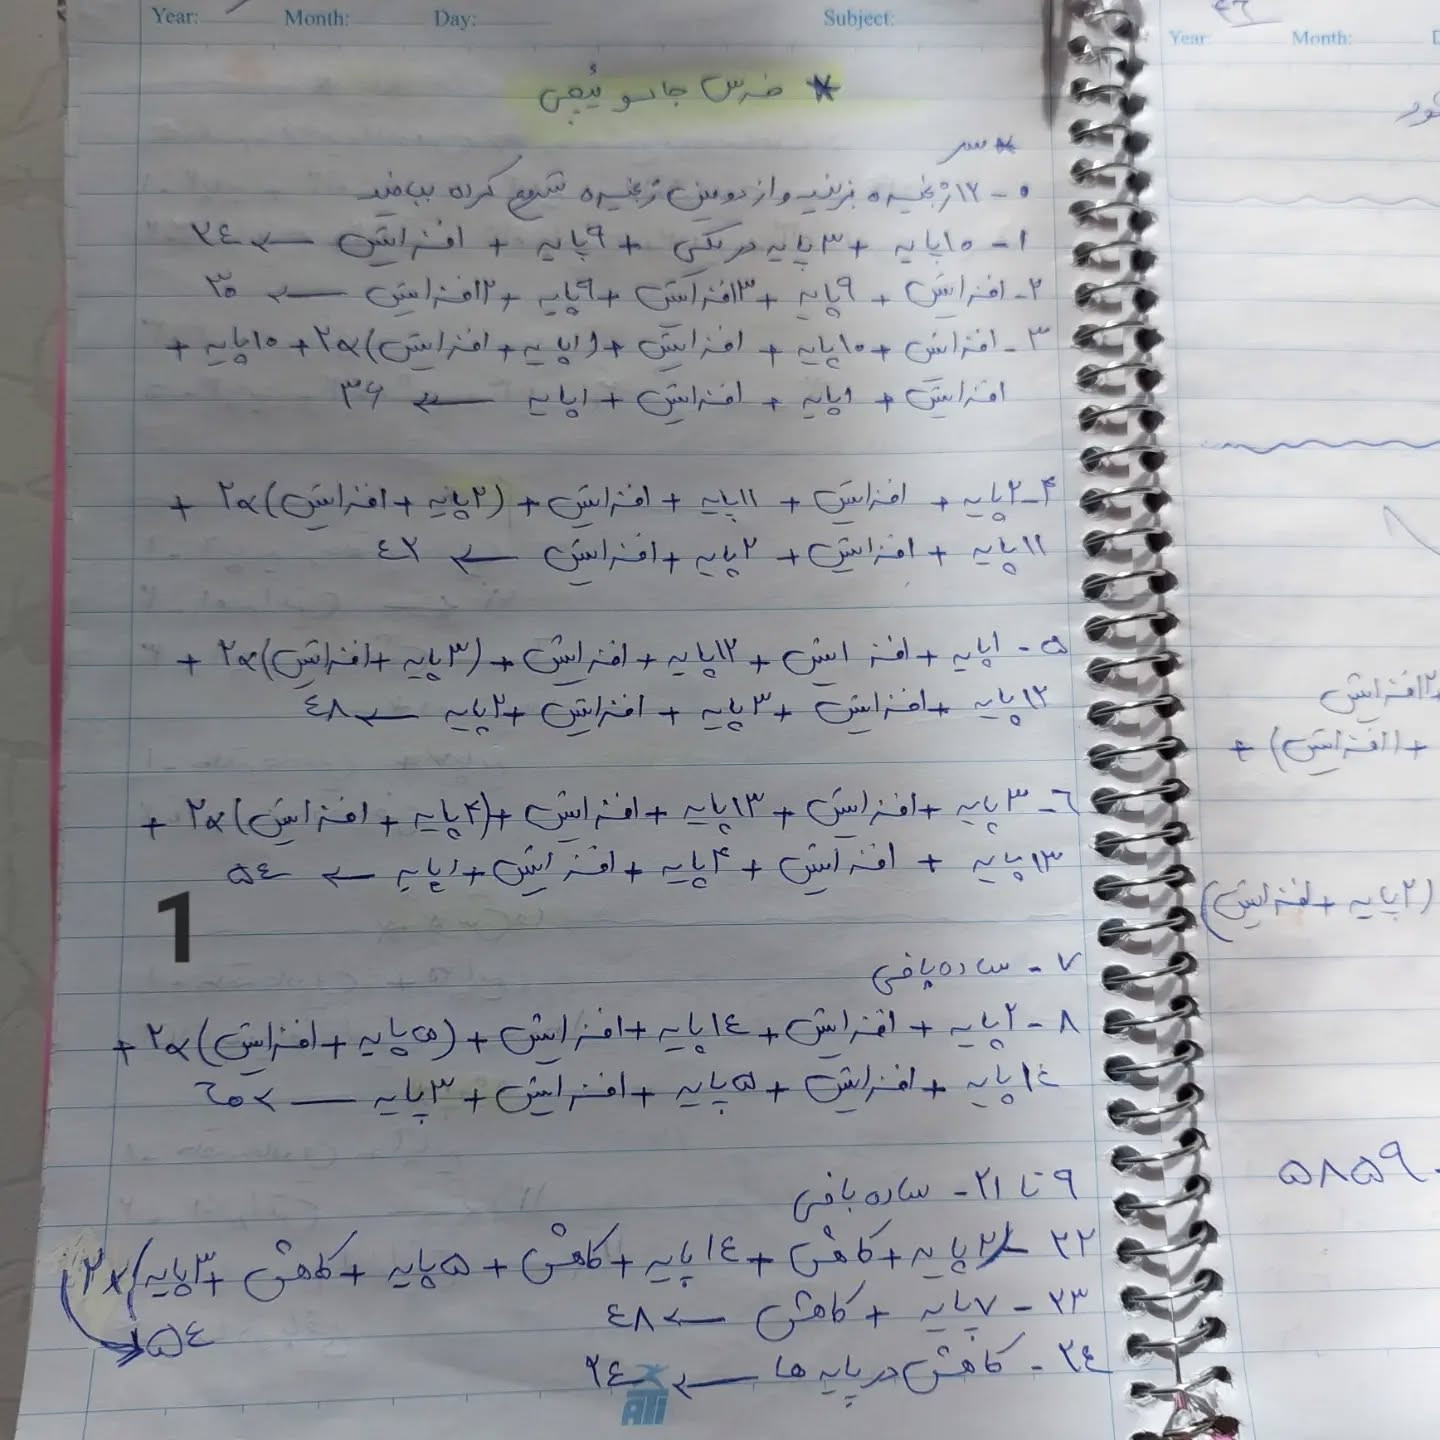 Year: Month: Day: Subject:
* خرس جاسوئیچی
* سر
۰- ۱۲ زنجیره بزنید و از دومین زنجیره شروع کرده ببافید
۱- ۱۰پایه + ۳پایه در یکی + ۹پایه + افزایش ← ۲٤
۲- افزایش + ۹پایه + ۳افزایش + ۹پایه + ۲افزایش ← ۳۰
۳- افزایش + ۱۰پایه + افزایش + (۱پایه + افزایش)×۲ + ۱۰پایه +
افزایش + ۱پایه + افزایش + ۱پایه ← ۳۶
۴- ۲پایه + افزایش + ۱۱پایه + افزایش + (۲پایه + افزایش)×۲ +
۱۱پایه + افزایش + ۲پایه + افزایش ← ٤۲
۵- ۱پایه + افزایش + ۱۲پایه + افزایش + (۳پایه + افزایش)×۲ +
۱۲پایه + افزایش + ۳پایه + افزایش + ۲پایه ← ٤۸
٦- ۳پایه + افزایش + ۱۳پایه + افزایش + (۴پایه + افزایش)×۲ +
۱۳پایه + افزایش + ۴پایه + افزایش + ۱پایه ← ۵٤
1
۷- ساده بافی
۸- ۲پایه + افزایش + ۱٤پایه + افزایش + (۵پایه + افزایش)×۲ +
۱٤پایه + افزایش + ۵پایه + افزایش + ۳پایه ← ٦۰
۹ تا ۲۱- ساده بافی
۲۲- (۲پایه + کاهش + ۱٤پایه + کاهش + ۵پایه + کاهش + ۳پایه)×۲
۲۳- ۷پایه + کاهش ← ٤۸
۵٤
۲٤- کاهش در پایه ها ← ۲٤
ATI
Year: Month:
۲افزایش
+ (افزایش) +
(۲پایه + افزایش)
۵۸۵۹